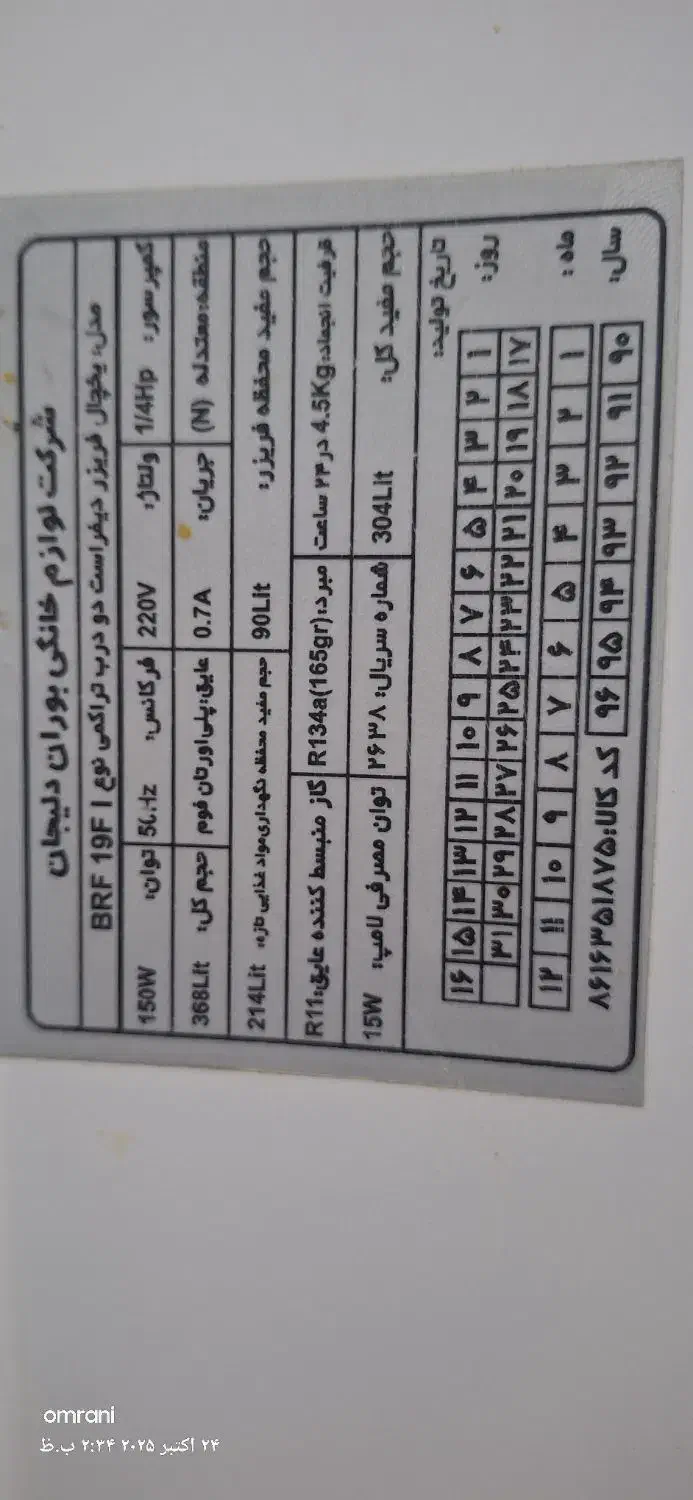 شرکت لوازم خانگی بوران دلیجان
مدل: یخچال فریزر دیفراست دو درب تراکمی نوع I BRF 19F
کمپرسور: 1/4Hp ولتاژ: 220V فرکانس: 50Hz توان: 150W
منطقه: معتدله (N) جریان: 0.7A عایق: پلی اورتان فوم حجم کل: 368Lit
حجم مفید محفظه فریزر: 90Lit حجم مفید محفظه نگهداری مواد غذایی تازه: 214Lit
ظرفیت انجماد: 4.5Kg در ۲۴ ساعت مبرد: R134a(165gr) گاز منبسط کننده عایق: R11
حجم مفید کل: 304Lit شماره سریال: ۲۶۳۸ توان مصرفی لامپ: 15W
تاریخ تولید:
روز: ۱ ۲ ۳ ۴ ۵ ۶ ۷ ۸ ۹ ۱۰ ۱۱ ۱۲ ۱۳ ۱۴ ۱۵ ۱۶
۱۷ ۱۸ ۱۹ ۲۰ ۲۱ ۲۲ ۲۳ ۲۴ ۲۵ ۲۶ ۲۷ ۲۸ ۲۹ ۳۰ ۳۱
ماه: ۱ ۲ ۳ ۴ ۵ ۶ ۷ ۸ ۹ ۱۰ ۱۱ ۱۲
سال: ۹۰ ۹۱ ۹۲ ۹۳ ۹۴ ۹۵ ۹۶ کد کالا: ۸۶۱۶۳۵۱۸۷۵
omrani
۲۴ اکتبر ۲۰۲۵ ۲:۳۴ ب.ظ